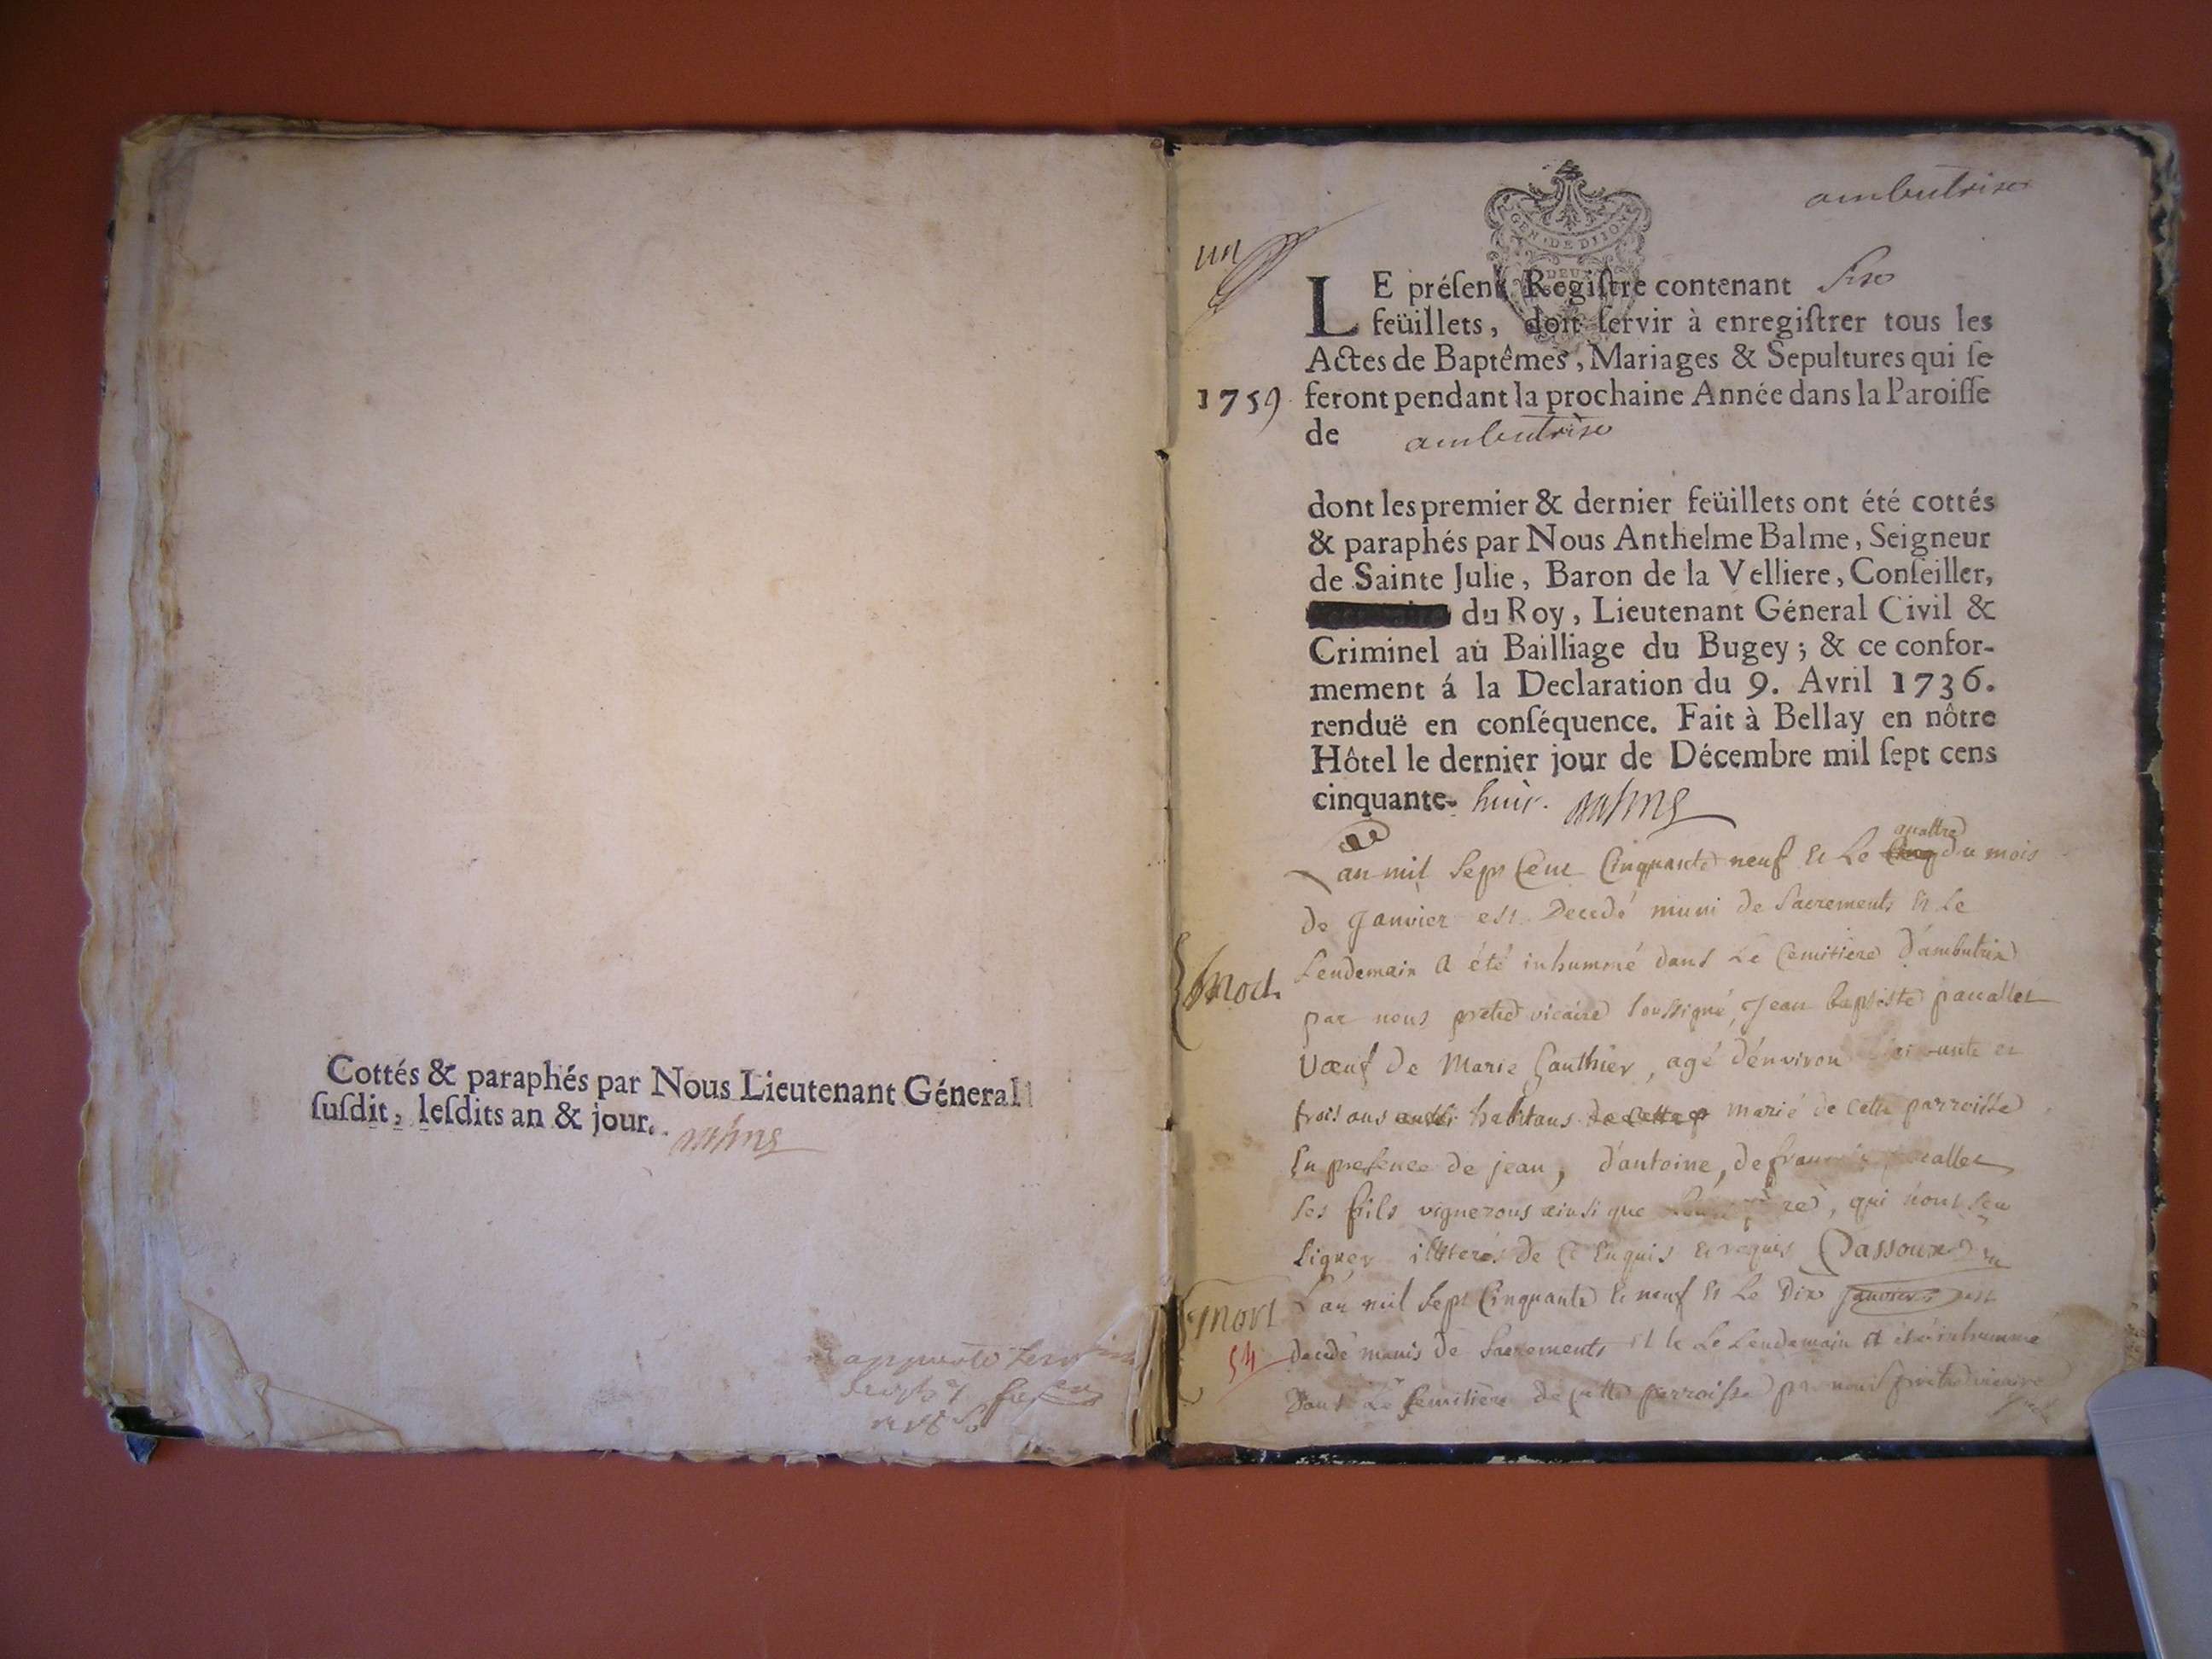 Cottés & paraphés par Nous Lieutenant Géneral
ſuſdit, leſdits an & jour.
ambutrix
un
GEN. DE DIJON
DEUX
LE préſent Regiſtre contenant Six
feüillets, doit ſervir à enregiſtrer tous les
Actes de Baptêmes, Mariages & Sepultures qui ſe
1759 feront pendant la prochaine Année dans la Paroiſſe
de ambutrix
dont les premier & dernier feüillets ont été cottés
& paraphés par Nous Anthelme Balme, Seigneur
de Sainte Julie, Baron de la Velliere, Conſeiller,
du Roy, Lieutenant Géneral Civil &
Criminel au Bailliage du Bugey; & ce confor-
mement á la Declaration du 9. Avril 1736.
renduë en conſéquence. Fait à Bellay en nôtre
Hôtel le dernier jour de Décembre mil ſept cens
cinquante- huit.
quattre
L'an mil sept Cent Cinquante neuf et Le Cinq du mois
de Janvier est Decedé muni de Sacrements et Le
Mort Lendemain A été inhummé dans Le Cemitiere d'ambutrix
par nous pretre vicaire soussigné, Jean baptiste
vœuf de Marie Gauthier, agé d'énviron et
trois ans aussi habitans de cette p marié de cette parroisse
En presence de jean, d'antoine, de
ses fils vignerons ainsi que qui n'ont sçu
signer illiterés de Ce Enquis et requis Dassoux
Mort L'an mil sept Cinquante et neuf et Le Dix Janvier est
54 decedé munis de Sacrements et le Le Lendemain A été inhummé
Dans Le Cemitiere de cette parroisse par nous pretre vicaire